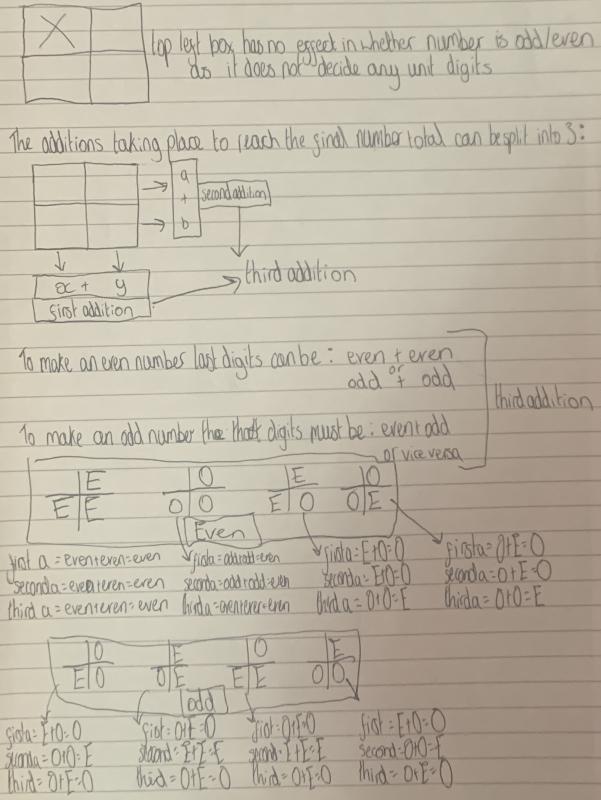 X
top left box has no effect in whether number is odd/even
as it does not decide any unit digits
The additions taking place to reach the final number total can be split into 3:
a
+
second addition
b
third addition
x + y
first addition
To make an even number last digits can be: even + even
or
odd + odd
third addition
To make an odd number the digits must be: even + odd
or vice versa
E O E O
E E O O E O O E
Even
first a = even+even=even firsta=odd+odd=even firsta=E+O=O firsta=O+E=O
second a = even+even=even seconda=odd+odd=even seconda=E+O=O seconda=O+E=O
third a = even+even=even thirda=even+even=even thirda=O+O=E thirda=O+O=E
O E O E
E O O E E E O O
odd
firsta=E+O=O first=O+E=O first=O+E=O first=E+O=O
seconda=O+O=E second=E+E=E second=E+E=E second=O+O=E
third=O+E=O third=O+E=O third=O+E=O third=O+E=O